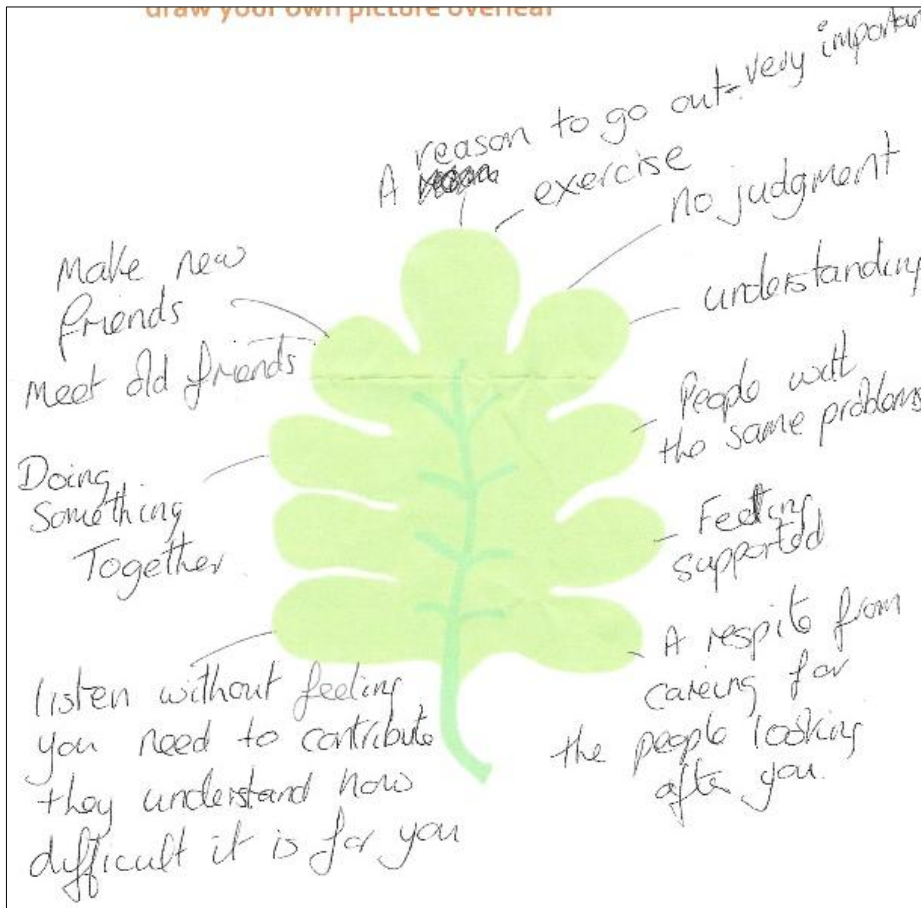 draw your own picture overleaf
A reason to go out - very important
exercise
no judgment
understanding
People with
the same problems
Feeling
supported
A respite from
careing for
the people looking
after you.
Make new
friends
Meet old friends
Doing
Something
Together
listen without feeling
you need to contribute
they understand how
difficult it is for you